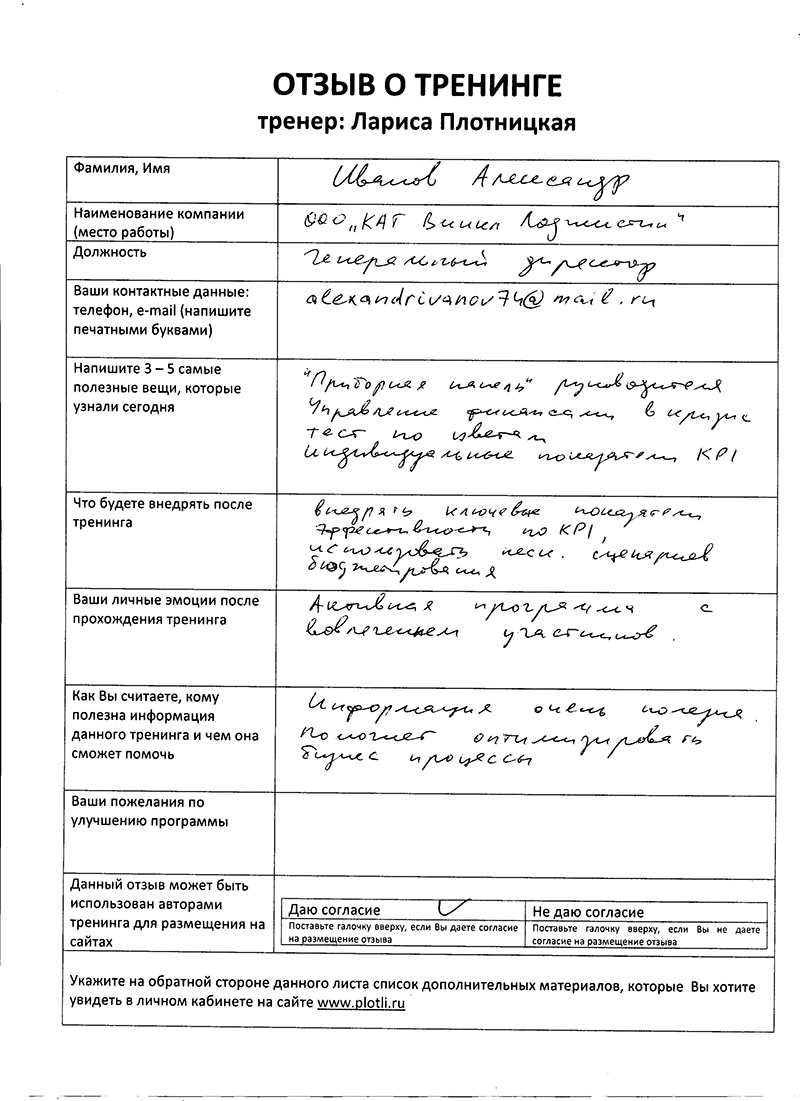 ОТЗЫВ О ТРЕНИНГЕ
тренер: Лариса Плотницкая
Фамилия, Имя
Иванов Александр
Наименование компании
(место работы)
ООО „КАТ Винил Лоджистик"
Должность
Генеральный директор
Ваши контактные данные:
телефон, e-mail (напишите
печатными буквами)
alexandrivanov74@mail.ru
Напишите 3 – 5 самые
полезные вещи, которые
узнали сегодня
"Приборная панель" руководителя
Управление финансами в кризис
тест по цветам
Индивидуальные показатели KPI
Что будете внедрять после
тренинга
внедрять ключевые показатели
Эффективность по KPI,
использовать неск. сценариев
бюджетирования
Ваши личные эмоции после
прохождения тренинга
Активная программа с
вовлечением участников.
Как Вы считаете, кому
полезна информация
данного тренинга и чем она
сможет помочь
Информация очень полезна.
Помогает оптимизировать
бизнес процессы
Ваши пожелания по
улучшению программы
Данный отзыв может быть
использован авторами
тренинга для размещения на
сайтах
Даю согласие
Поставьте галочку вверху, если Вы даете согласие
на размещение отзыва
Не даю согласие
Поставьте галочку вверху, если Вы не даете
согласие на размещение отзыва
Укажите на обратной стороне данного листа список дополнительных материалов, которые Вы хотите
увидеть в личном кабинете на сайте www.plotli.ru